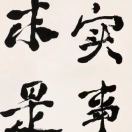 实事
求是